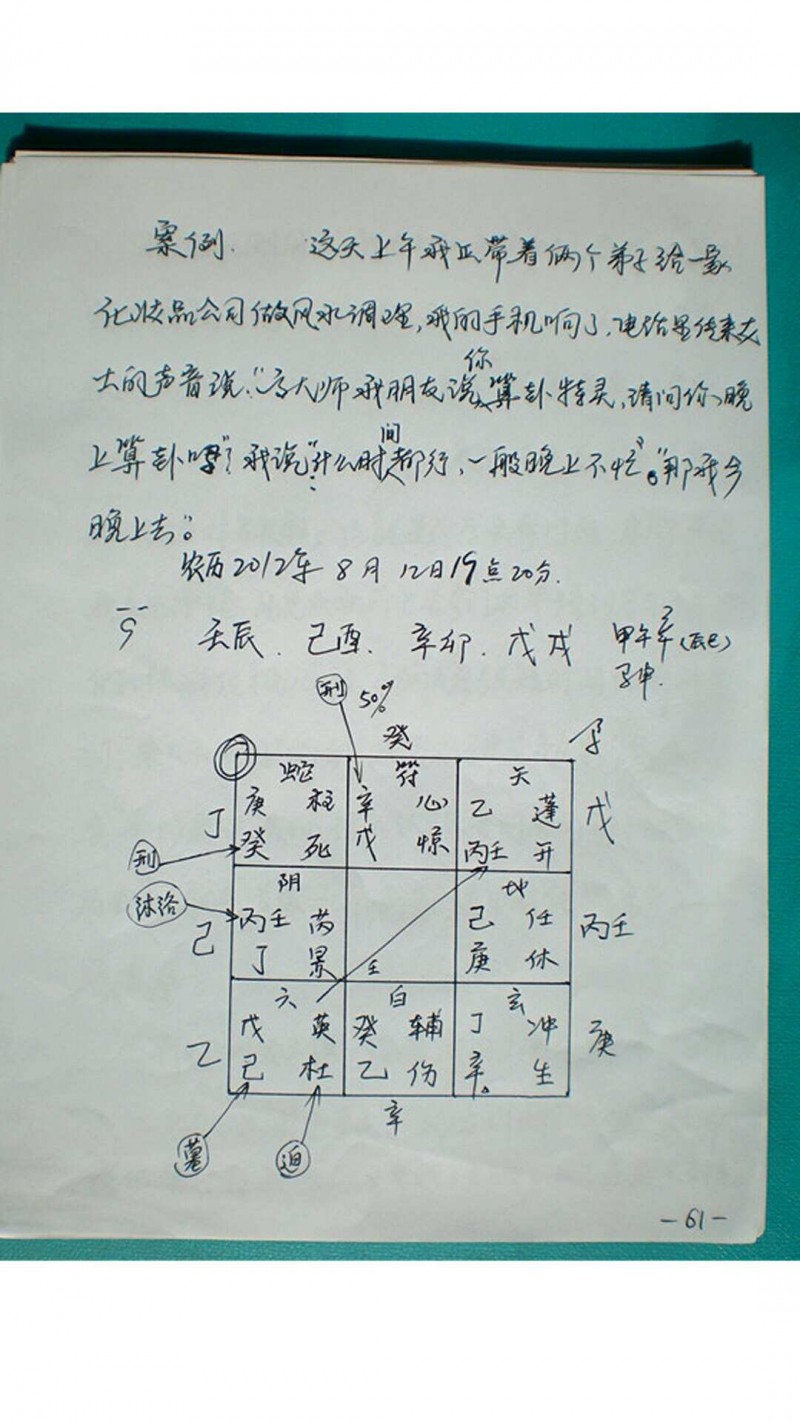 案例. 这天上午我正带着俩个弟子给一家
化妆品公司做风水调理,我的手机响了,电话里传来女
士的声音说:"高大师我朋友说你算卦特灵,请问你晚
上算卦吗"?我说"什么时间都行,一般晚上不忙"。"那我今
晚上去"。
农历2012年8月12日19点20分.
壬辰. 己酉. 辛卯. 戊戌 甲午辛(辰巳)
刑 50%
癸
蛇 符 天
丁 庚 柱 辛 心 乙 蓬 戊
刑 癸 死 戊 惊 丙壬 开
阴 地
沐浴 丙壬 芮 己 任 丙壬
己 丁 景 庚 休
六 白 玄
戊 英 癸 辅 丁 冲 庚
乙 己 杜 乙 伤 辛 生
辛
墓 迫
-61-